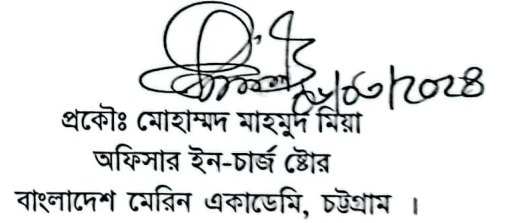 প্রকৌঃ মোহাম্মদ মাহমুদ মিয়া
অফিসার ইন-চার্জ ষ্টোর
বাংলাদেশ মেরিন একাডেমি, চট্টগ্রাম ।